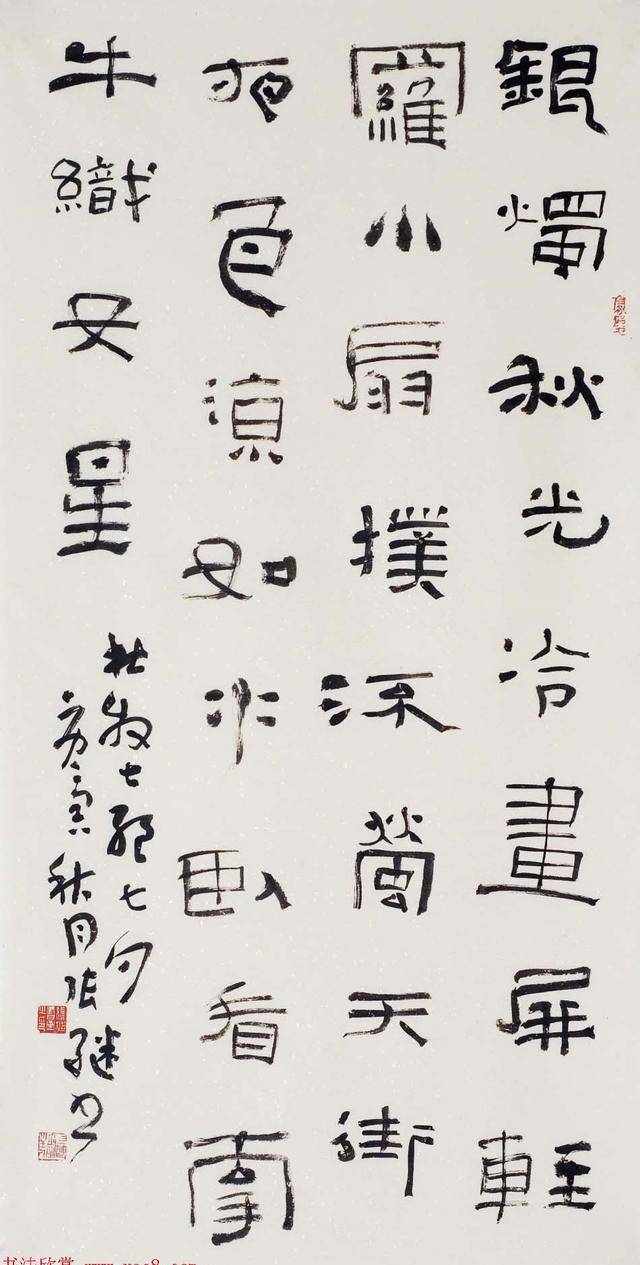 銀燭秋光冷畫屏輕
羅小扇撲流螢天街
夜色涼如水臥看牽
牛織女星
杜牧七絕七夕
庚寅秋月張継书
书法欣赏 www.yac8.com